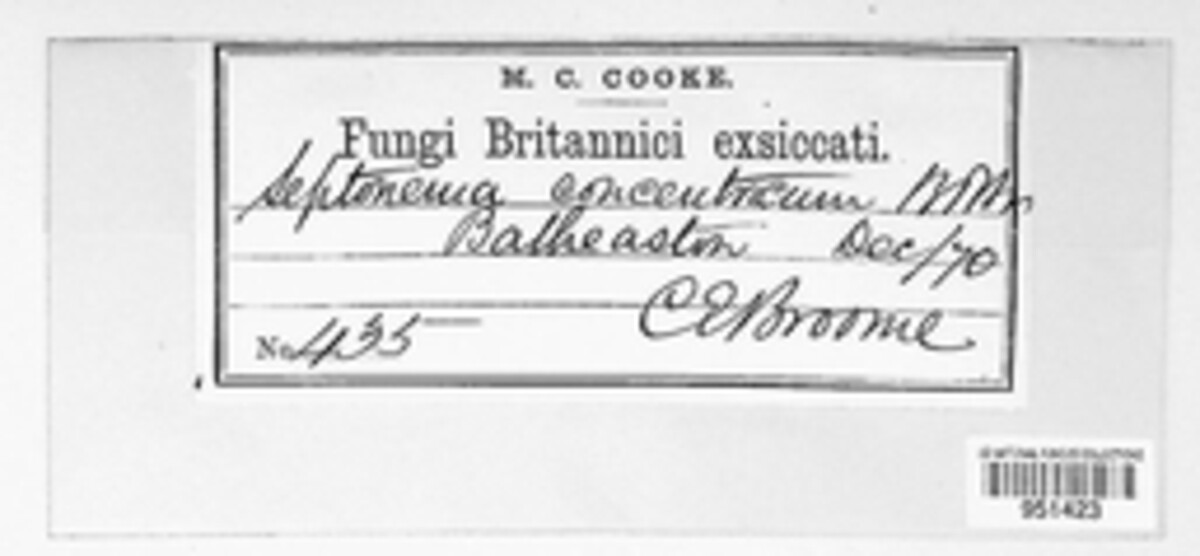 M. C. COOKE.
Fungi Britannici exsiccati.
Septonema concentricum
Batheaston Dec/70
C E Broome
No 435
951423